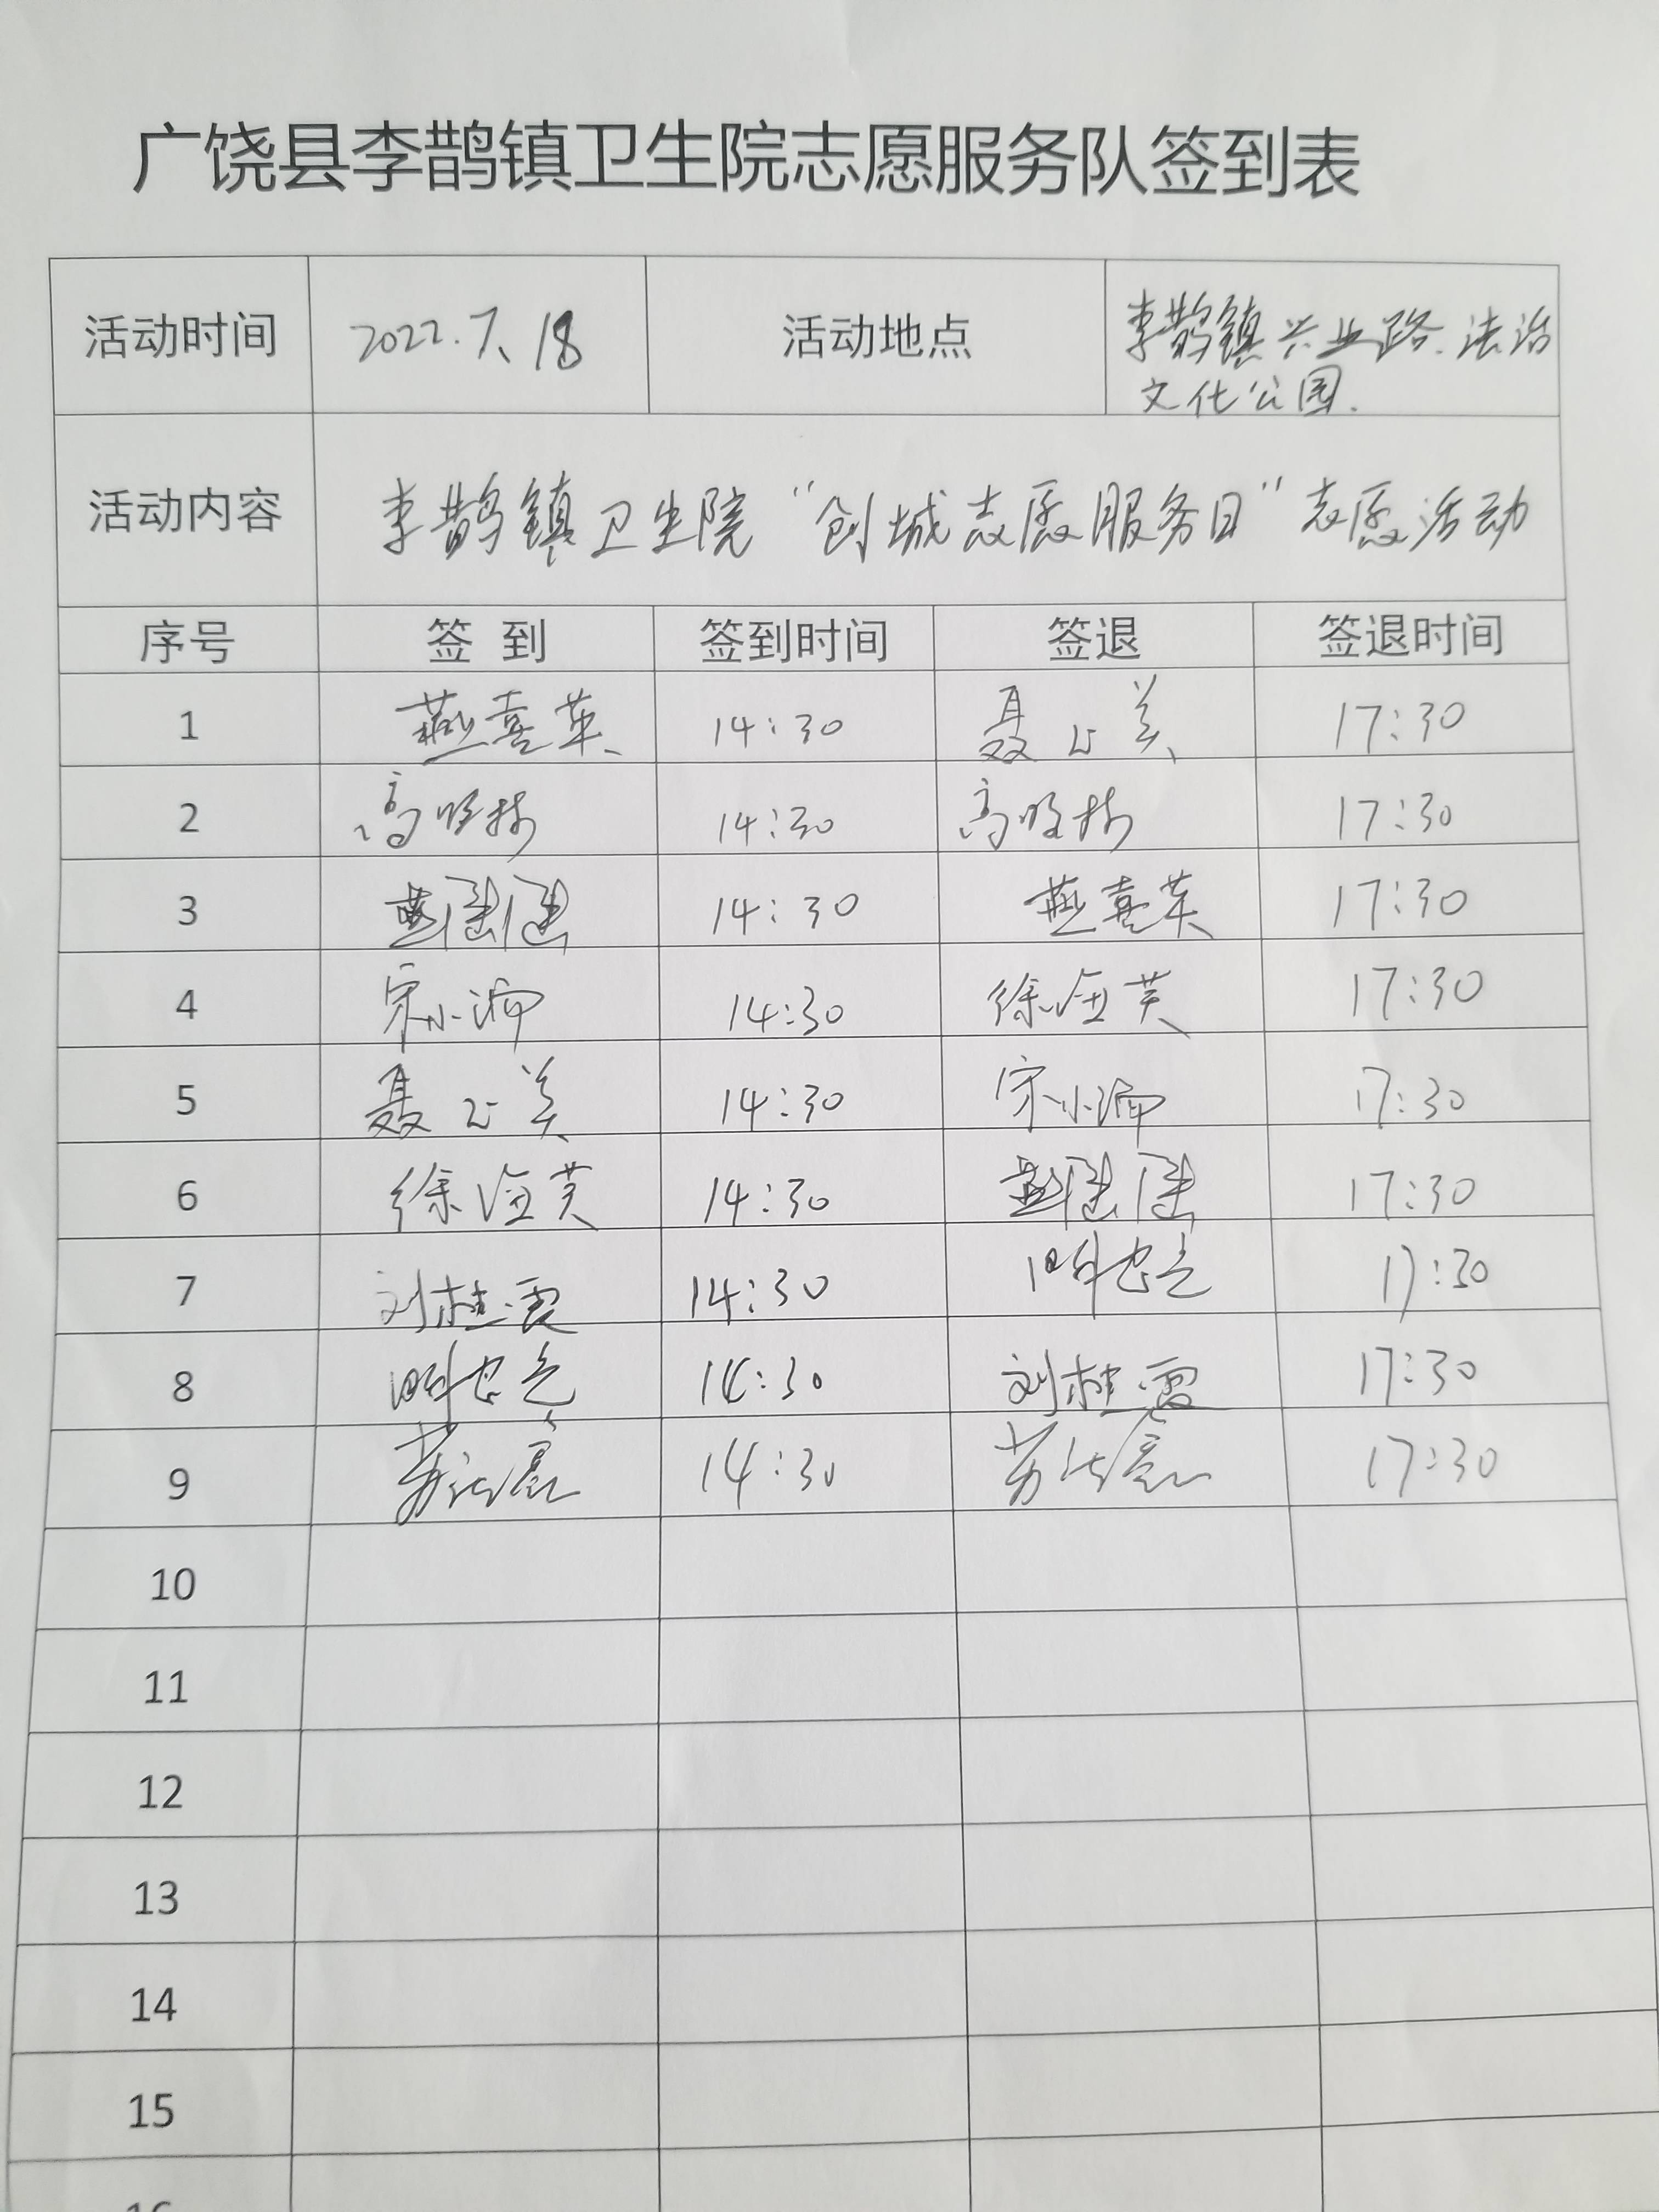 广饶县李鹊镇卫生院志愿服务队签到表
活动时间 2022.7、18 活动地点 李鹊镇兴业路.法治
文化公园.
活动内容 李鹊镇卫生院“创城志愿服务日”志愿活动
序号 签 到 签到时间 签退 签退时间
1 燕喜英 14:30 聂 美 17:30
2 高 14:30 高 17:30
3 燕 14:30 燕喜英 17:30
4 宋小 14:30 徐 芙 17:30
5 聂 美 14:30 宋小 17:30
6 徐 芙 14:30 燕 17:30
7 刘桂霞 14:30 17:30
8 14:30 刘桂霞 17:30
9 14:30 17:30
10
11
12
13
14
15
16